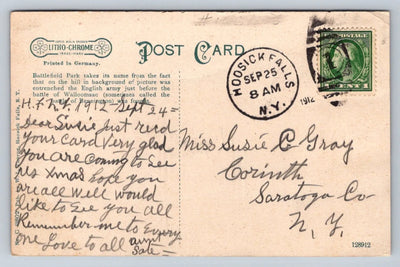 LITHO-CHROME
Printed in Germany.
POST CARD
Battlefield Park takes its name from the fact
that on the hill in background of picture was
entrenched the English army just before the
battle of Walloomsac (sometimes called the
battle of Bennington) was fought.
HOOSICK FALLS
SEP 25
8 AM
N.Y.
1912
1 CENT 1
H.F. N.Y. 1912 Sept 24th
Dear Susie Just recd
Your Card Very glad
You are Coming to See
us Xmas hope you
are all well would
like to See you all
Remember me to Every
one Love to all aunt
Sate
Miss Susie C Gray
Corinth
Saratoga Co
N. Y.
128912